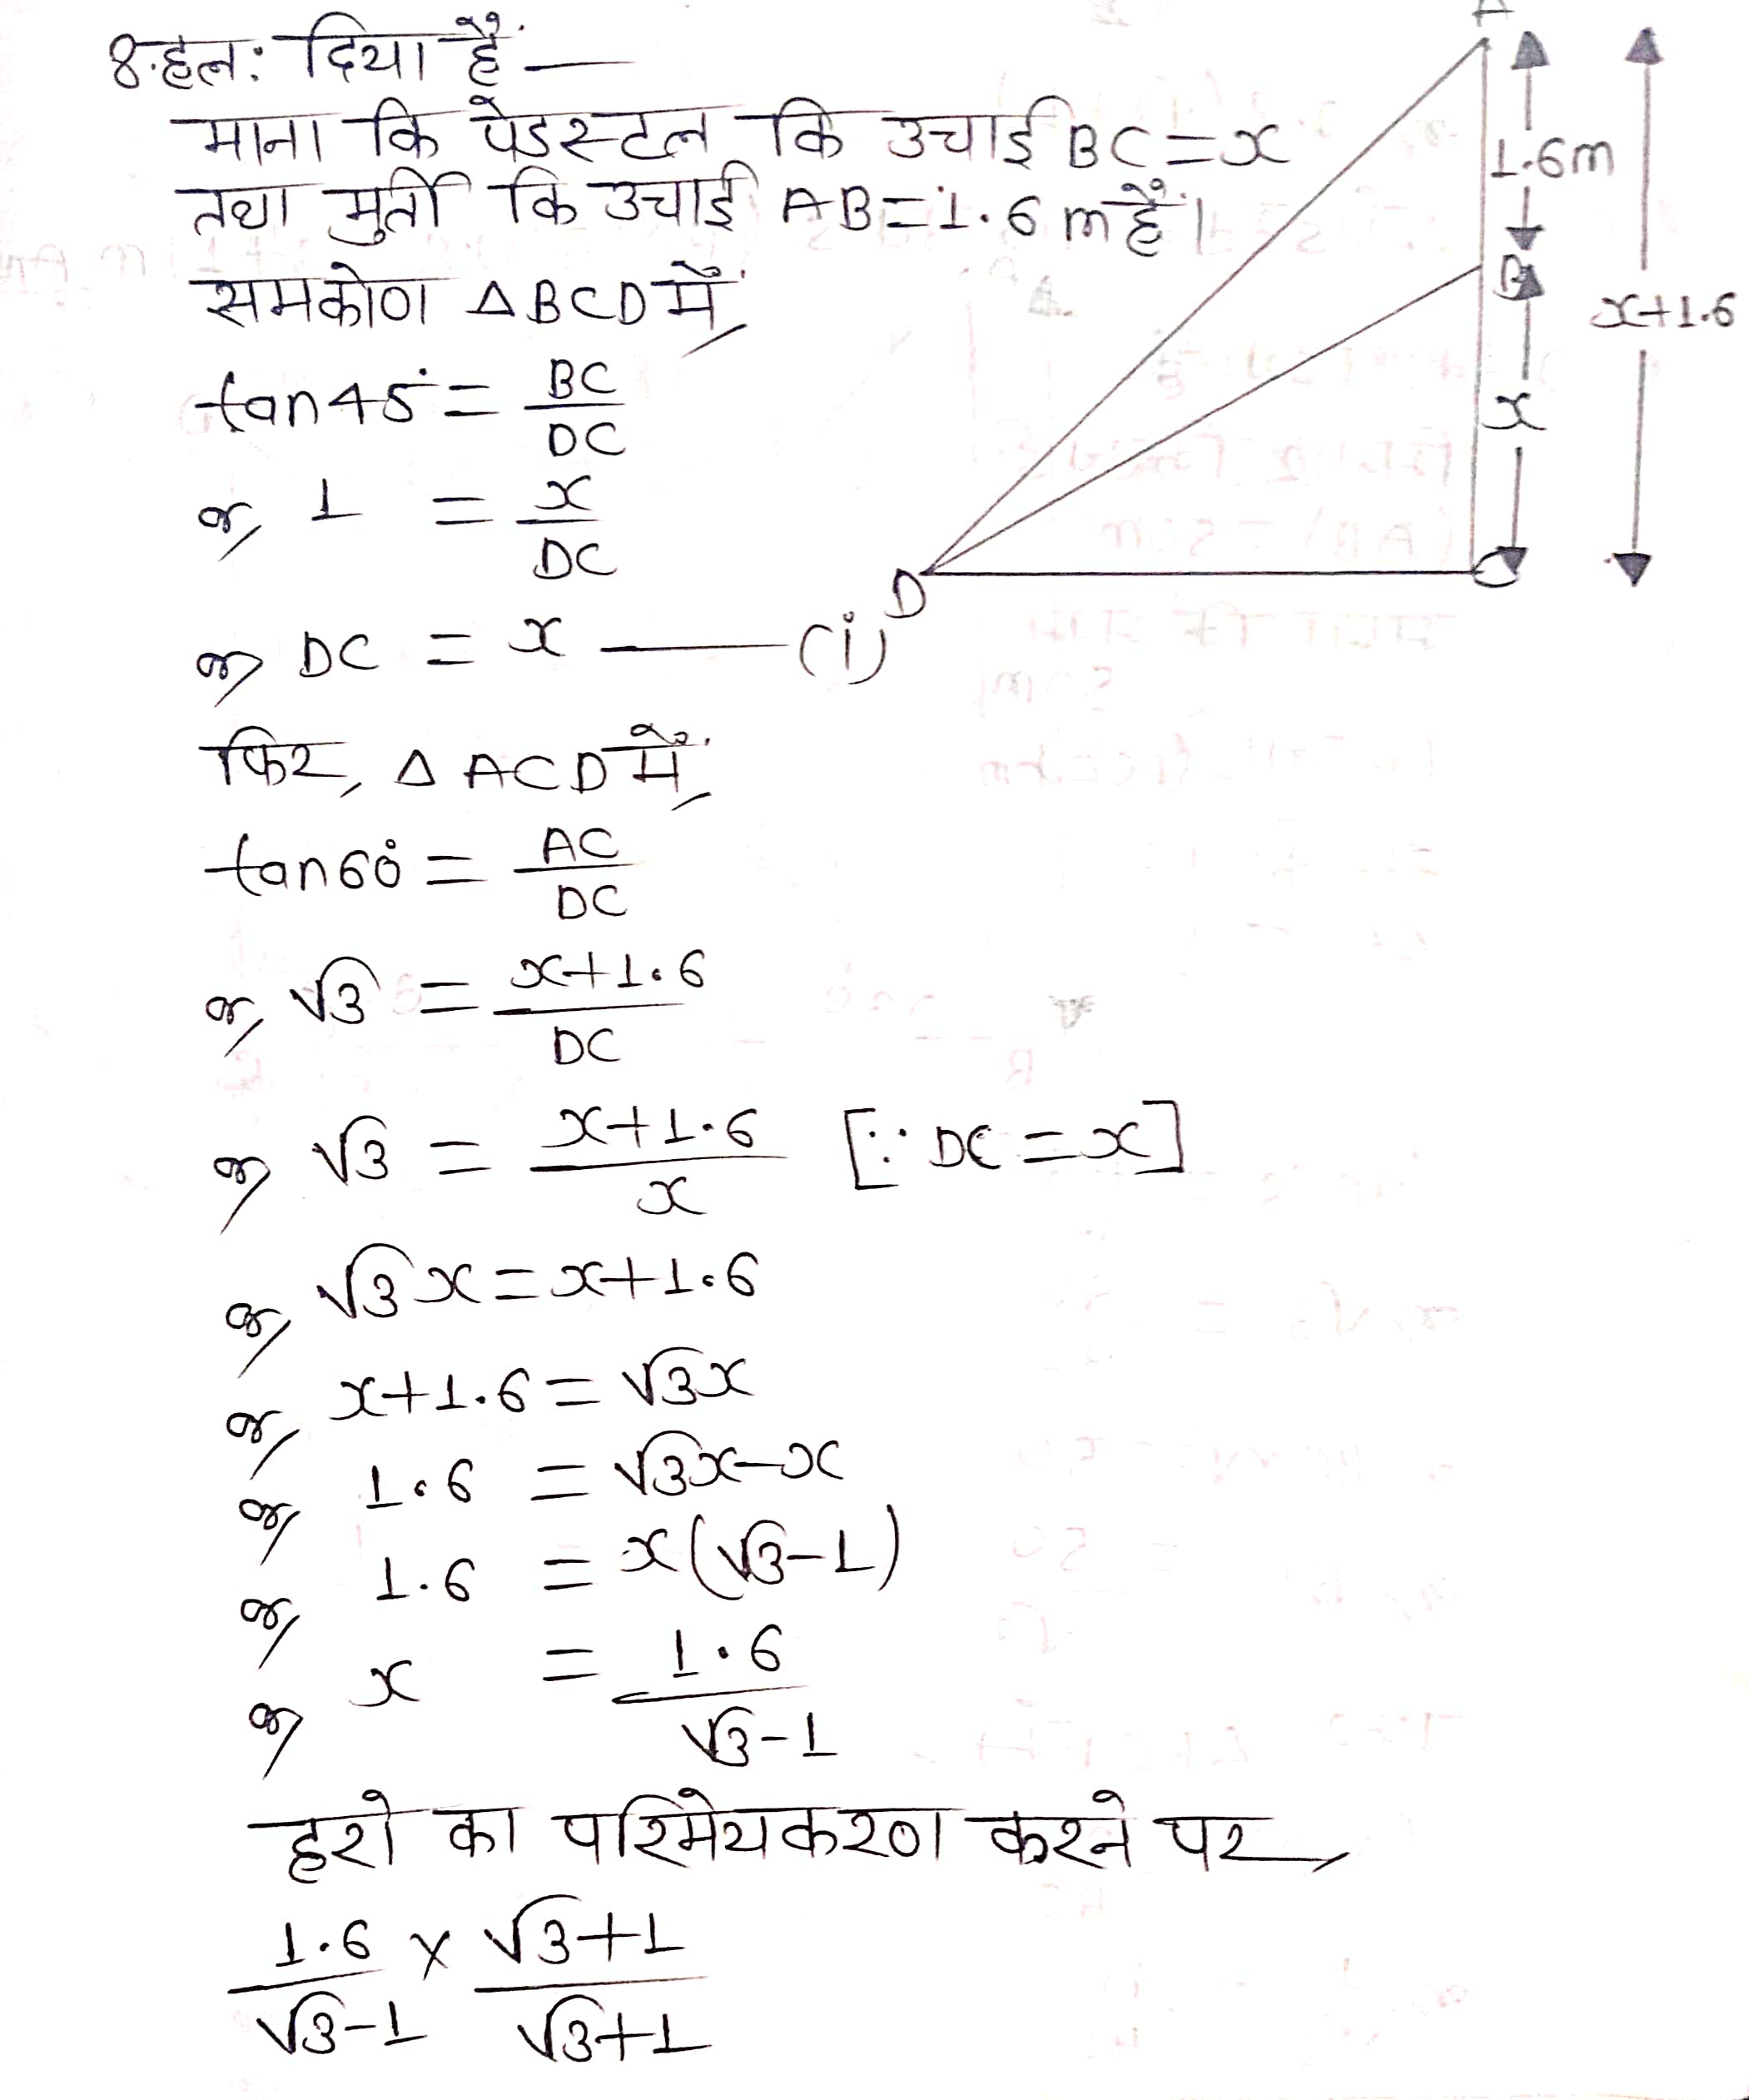 8.हल: दिया हैं —
माना कि पेडस्टल कि उचाई BC = x
तथा मुर्ती कि उचाई AB = 1.6 m हैं।
समकोण △BCD में,
tan 45° = BC/DC
or, 1 = x/DC
or, DC = x —— (i)
फिर, △ ACD में,
tan 60° = AC/DC
or, √3 = x+1.6/DC
or, √3 = x+1.6/x [∵ DC = x]
or, √3 x = x+1.6
or, x+1.6 = √3x
or, 1.6 = √3x-x
or, 1.6 = x(√3-1)
or, x = 1.6/√3-1
हरो का परिमेयकरण करने पर,
1.6/√3-1 × √3+1/√3+1
A
1.6m
B
x+1.6
x
D
C